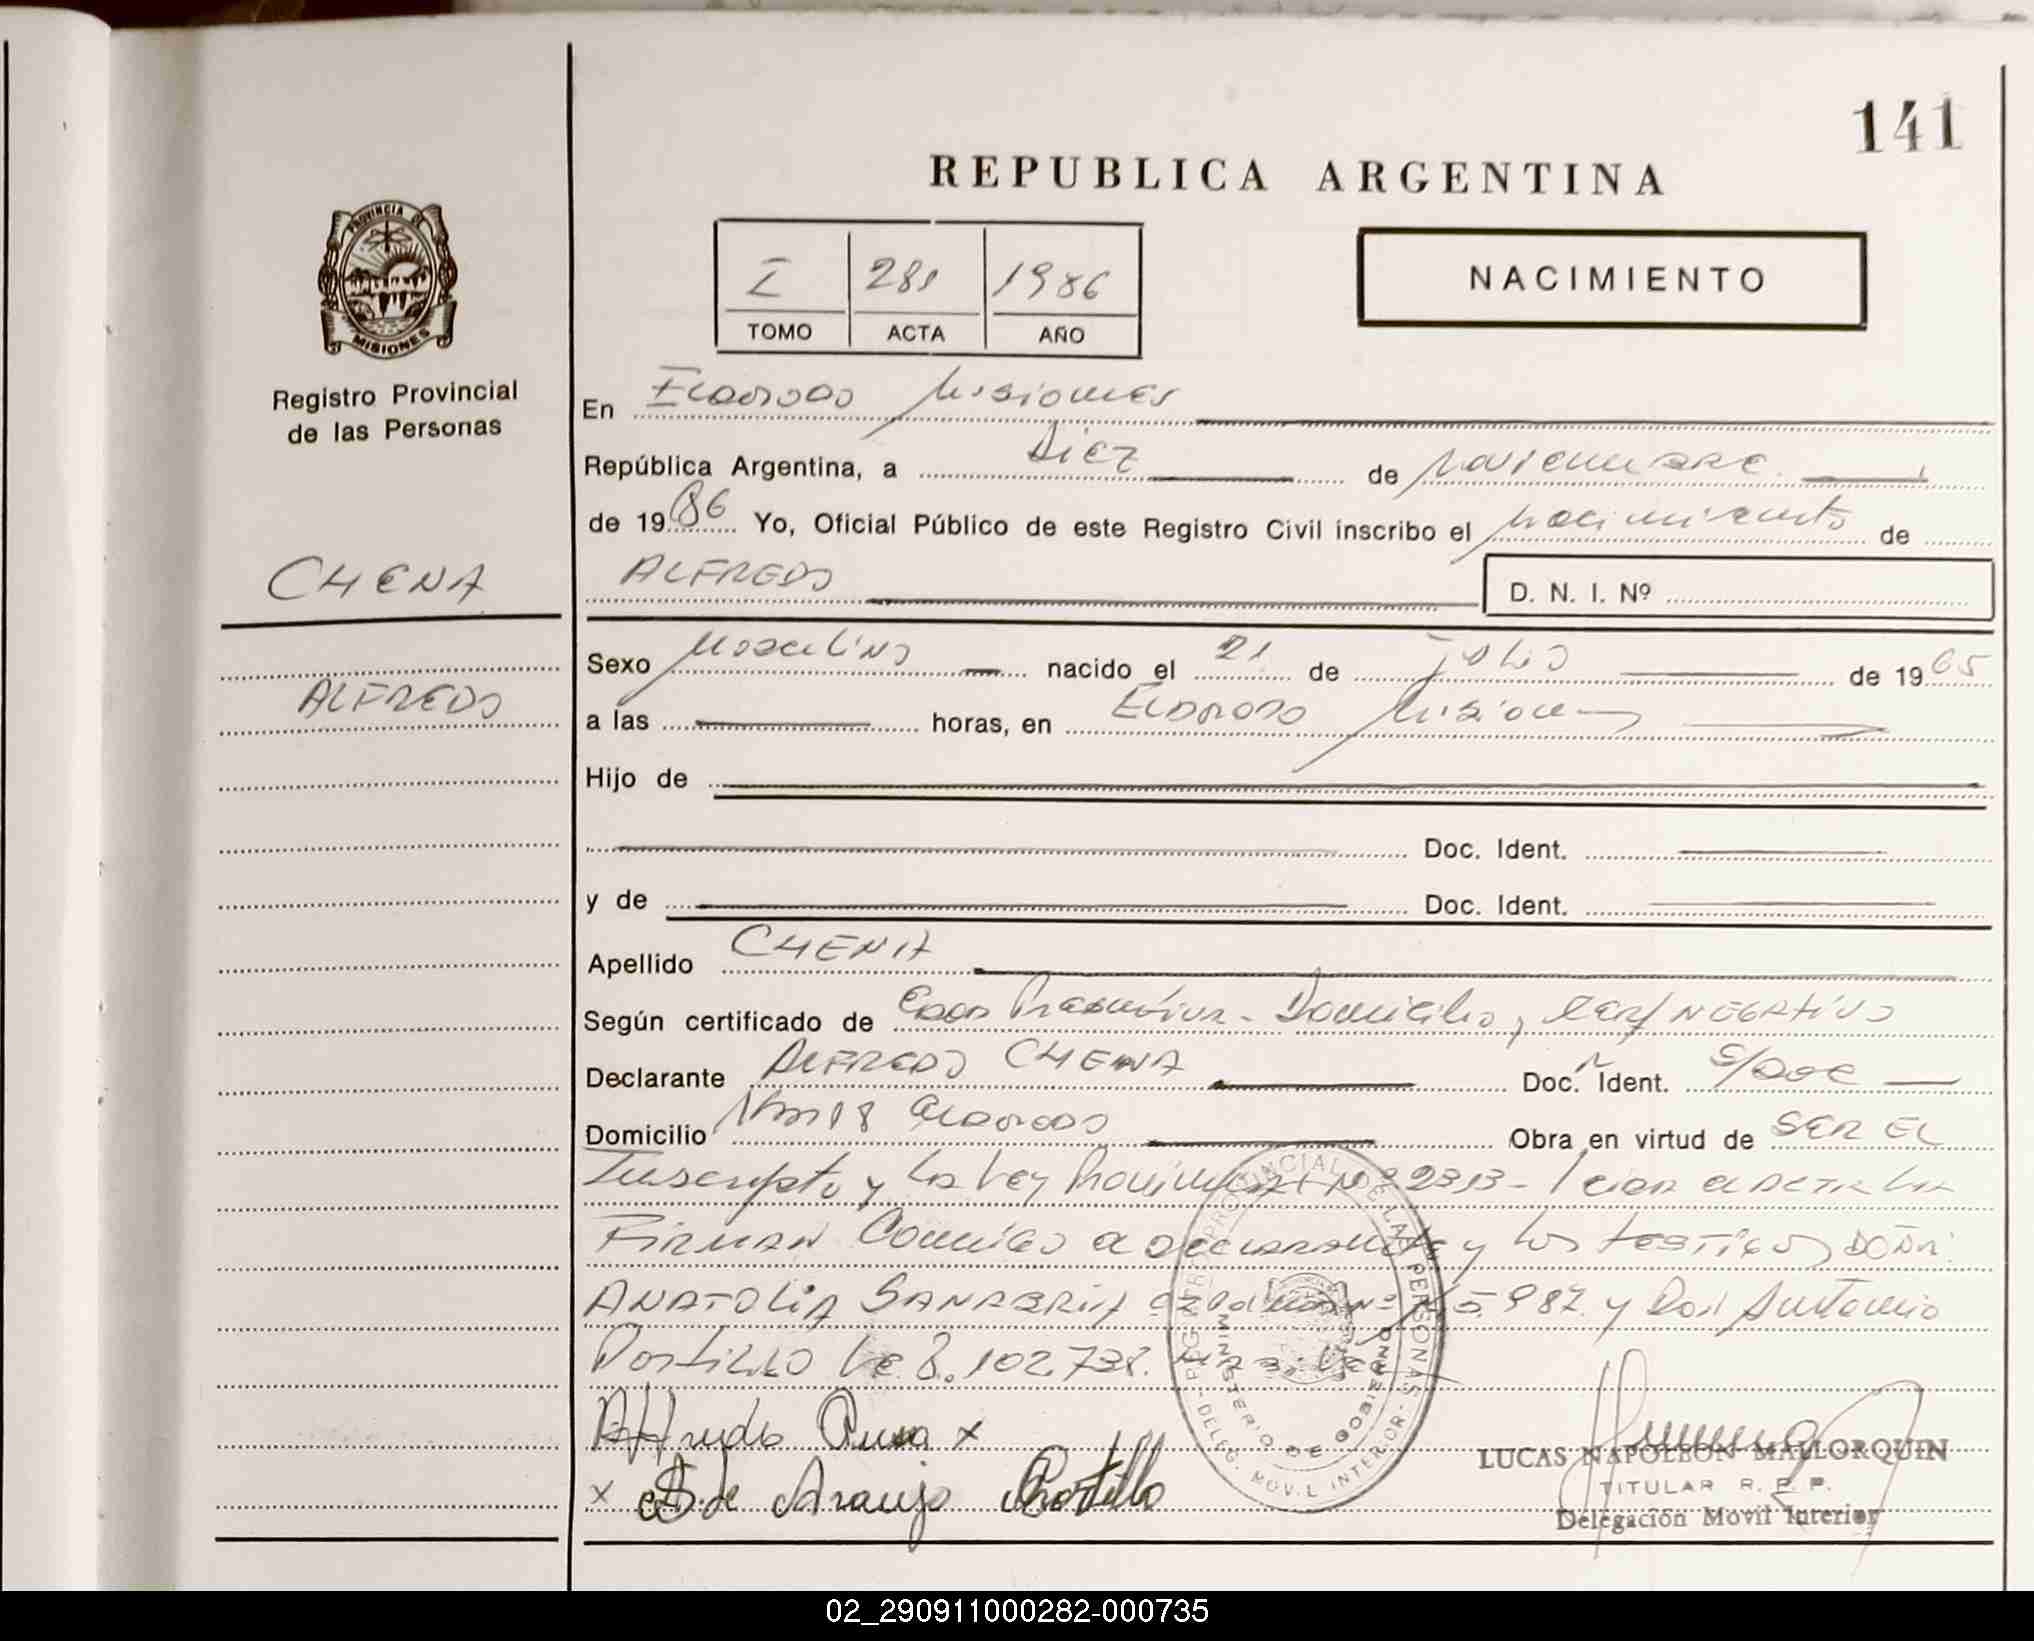 141
REPUBLICA ARGENTINA
PROVINCIA DE
MISIONES
Registro Provincial
de las Personas
I 281 1986
TOMO ACTA AÑO
NACIMIENTO
En Eldorado Misiones
República Argentina, a Diez de noviembre
de 1986 Yo, Oficial Público de este Registro Civil inscribo el nacimiento de
CHENA
ALFREDO
D. N. I. Nº
Sexo Masculino nacido el 21 de Julio de 1965
ALFREDO
a las horas, en Eldorado Misiones
Hijo de
Doc. Ident.
y de Doc. Ident.
Apellido CHENA
Según certificado de Edad Presuntiva - Domicilio, Cert/ NEGATIVO
Declarante ALFREDO CHENA Doc. Ident. S/Doc
Domicilio Km 18 Eldorado Obra en virtud de SER EL
Inscripto y la Ley Provincial Nº 2313 - leida el ACTA la
Firman Conmigo el declarante y los testigos DOÑA
ANATOLIA SANABRIA 5.987 y Don Antonio
Portillo Le 8.102.738.
Alfredo x
x A. de Araujo Portillo
REGISTRO PROVINCIAL DE LAS PERSONAS
MINISTERIO DE GOBIERNO
DELEG. MOVIL INTERIOR
LUCAS NAPOLEON MALLORQUIN
TITULAR R. P. P.
Delegación Movil Interior
02_290911000282-000735